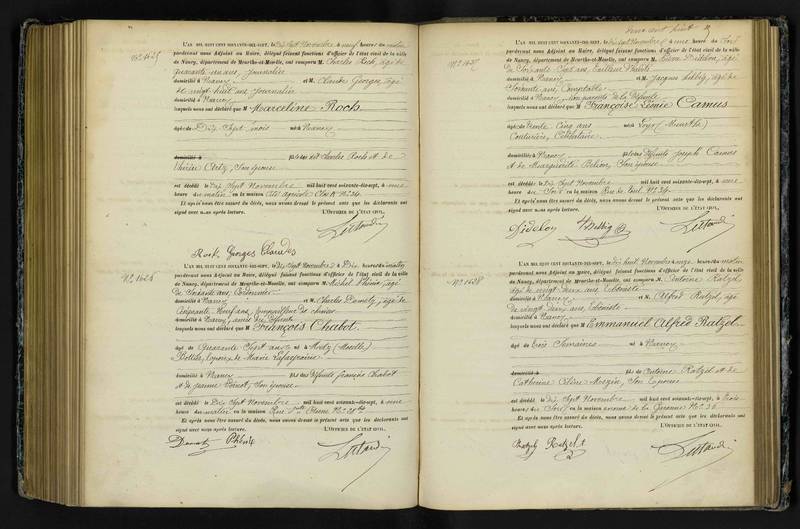 N° 1625
L'AN MIL HUIT CENT SOIXANTE-DIX-SEPT, le Dix Sept Novembre à neuf heures du matin
pardevant nous Adjoint au Maire, délégué faisant fonctions d'officier de l'état civil de la ville
de Nancy, département de Meurthe-et-Moselle, ont comparu M. Charles Roch, âgé de
quarante un ans, journalier
domicilié à Nancy et M. Claude Georges, âgé
de vingt huit ans, journalier
domicilié à Nancy
lesquels nous ont déclaré que M Marceline Roch
âgée de Dix Sept mois née à Nancy
domicilié à fille de dit Charles Roch et de
son épouse
est décédé le Dix Sept Novembre mil huit cent soixante-dix-sept, à une
heure du matin cité agricole N° 34.
Et après nous être assuré du décès, nous avons dressé le présent acte que les déclarants ont
signé avec nous après lecture. L'OFFICIER DE L'ÉTAT CIVIL,
Roch Georges Claudes
N° 1626
L'AN MIL HUIT CENT SOIXANTE-DIX-SEPT, le Dix Sept Novembre à Dix heures du matin
pardevant nous Adjoint au Maire, délégué faisant fonctions d'officier de l'état civil de la ville
de Nancy, département de Meurthe-et-Moselle, ont comparu M. Michel
de Soixante ans, Cordonnier
domicilié à Nancy et M. Charles âgé de
Cinquante Neuf ans, employé
domicilié à Nancy, amis du Défunt
lesquels nous ont déclaré que M François Chabot
âgé de Quarante Sept ans né à Metz (Moselle)
Bottier, époux de Marie
domicilié à Nancy fils des Défunts françois Chabot
et de Jeanne son épouse
est décédé le Dix Sept Novembre mil huit cent soixante-dix-sept, à une
heure du matin en la maison Rue
Et après nous être assuré du décès, nous avons dressé le présent acte que les déclarants ont
signé avec nous après lecture. L'OFFICIER DE L'ÉTAT CIVIL,
N° 1627
L'AN MIL HUIT CENT SOIXANTE-DIX-SEPT, le Dix Sept Novembre à une heure du Soir
pardevant nous Adjoint au Maire, délégué faisant fonctions d'officier de l'état civil de la ville
de Nancy, département de Meurthe-et-Moselle, ont comparu M. Pierre Didelon, âgé
de Soixante Sept ans, Tailleur d'habits
domicilié à Nancy et M. Jacques Helbig, âgé de
Soixante ans, Comptable
domicilié à Nancy, Non parents de la Défunte
lesquels nous ont déclaré que M Françoise Léonie Camus
âgée de trente Cinq ans née à (Meurthe)
Couturière, Célibataire
domiciliée à Nancy fille des Défunts Joseph Camus
et de Marguerite son épouse
est décédé le Dix Sept Novembre mil huit cent soixante-dix-sept, à une
heure du Soir en la maison Rue N° 34.
Et après nous être assuré du décès, nous avons dressé le présent acte que les déclarants ont
signé avec nous après lecture. L'OFFICIER DE L'ÉTAT CIVIL,
Didelon Helbig
N° 1628
L'AN MIL HUIT CENT SOIXANTE-DIX-SEPT, le Dix huit Novembre à onze heures du matin
pardevant nous Adjoint au Maire, délégué faisant fonctions d'officier de l'état civil de la ville
de Nancy, département de Meurthe-et-Moselle, ont comparu M. Antoine Ratzel
âgé de vingt deux ans, Ebéniste
domicilié à Nancy et M. Alfred Ratzel, âgé
de vingt deux ans, Ebéniste
domicilié à Nancy
lesquels nous ont déclaré que M Emmanuel Alfred Ratzel
âgé de trois Semaines né à Nancy
domicilié à fils de Antoine Ratzel et de
Catherine son Epouse
est décédé le Dix Sept Novembre mil huit cent soixante-dix-sept, à trois
heures du Soir en la maison avenue de la Garenne N° 38
Et après nous être assuré du décès, nous avons dressé le présent acte que les déclarants ont
signé avec nous après lecture. L'OFFICIER DE L'ÉTAT CIVIL,
Ratzel Ratzel A